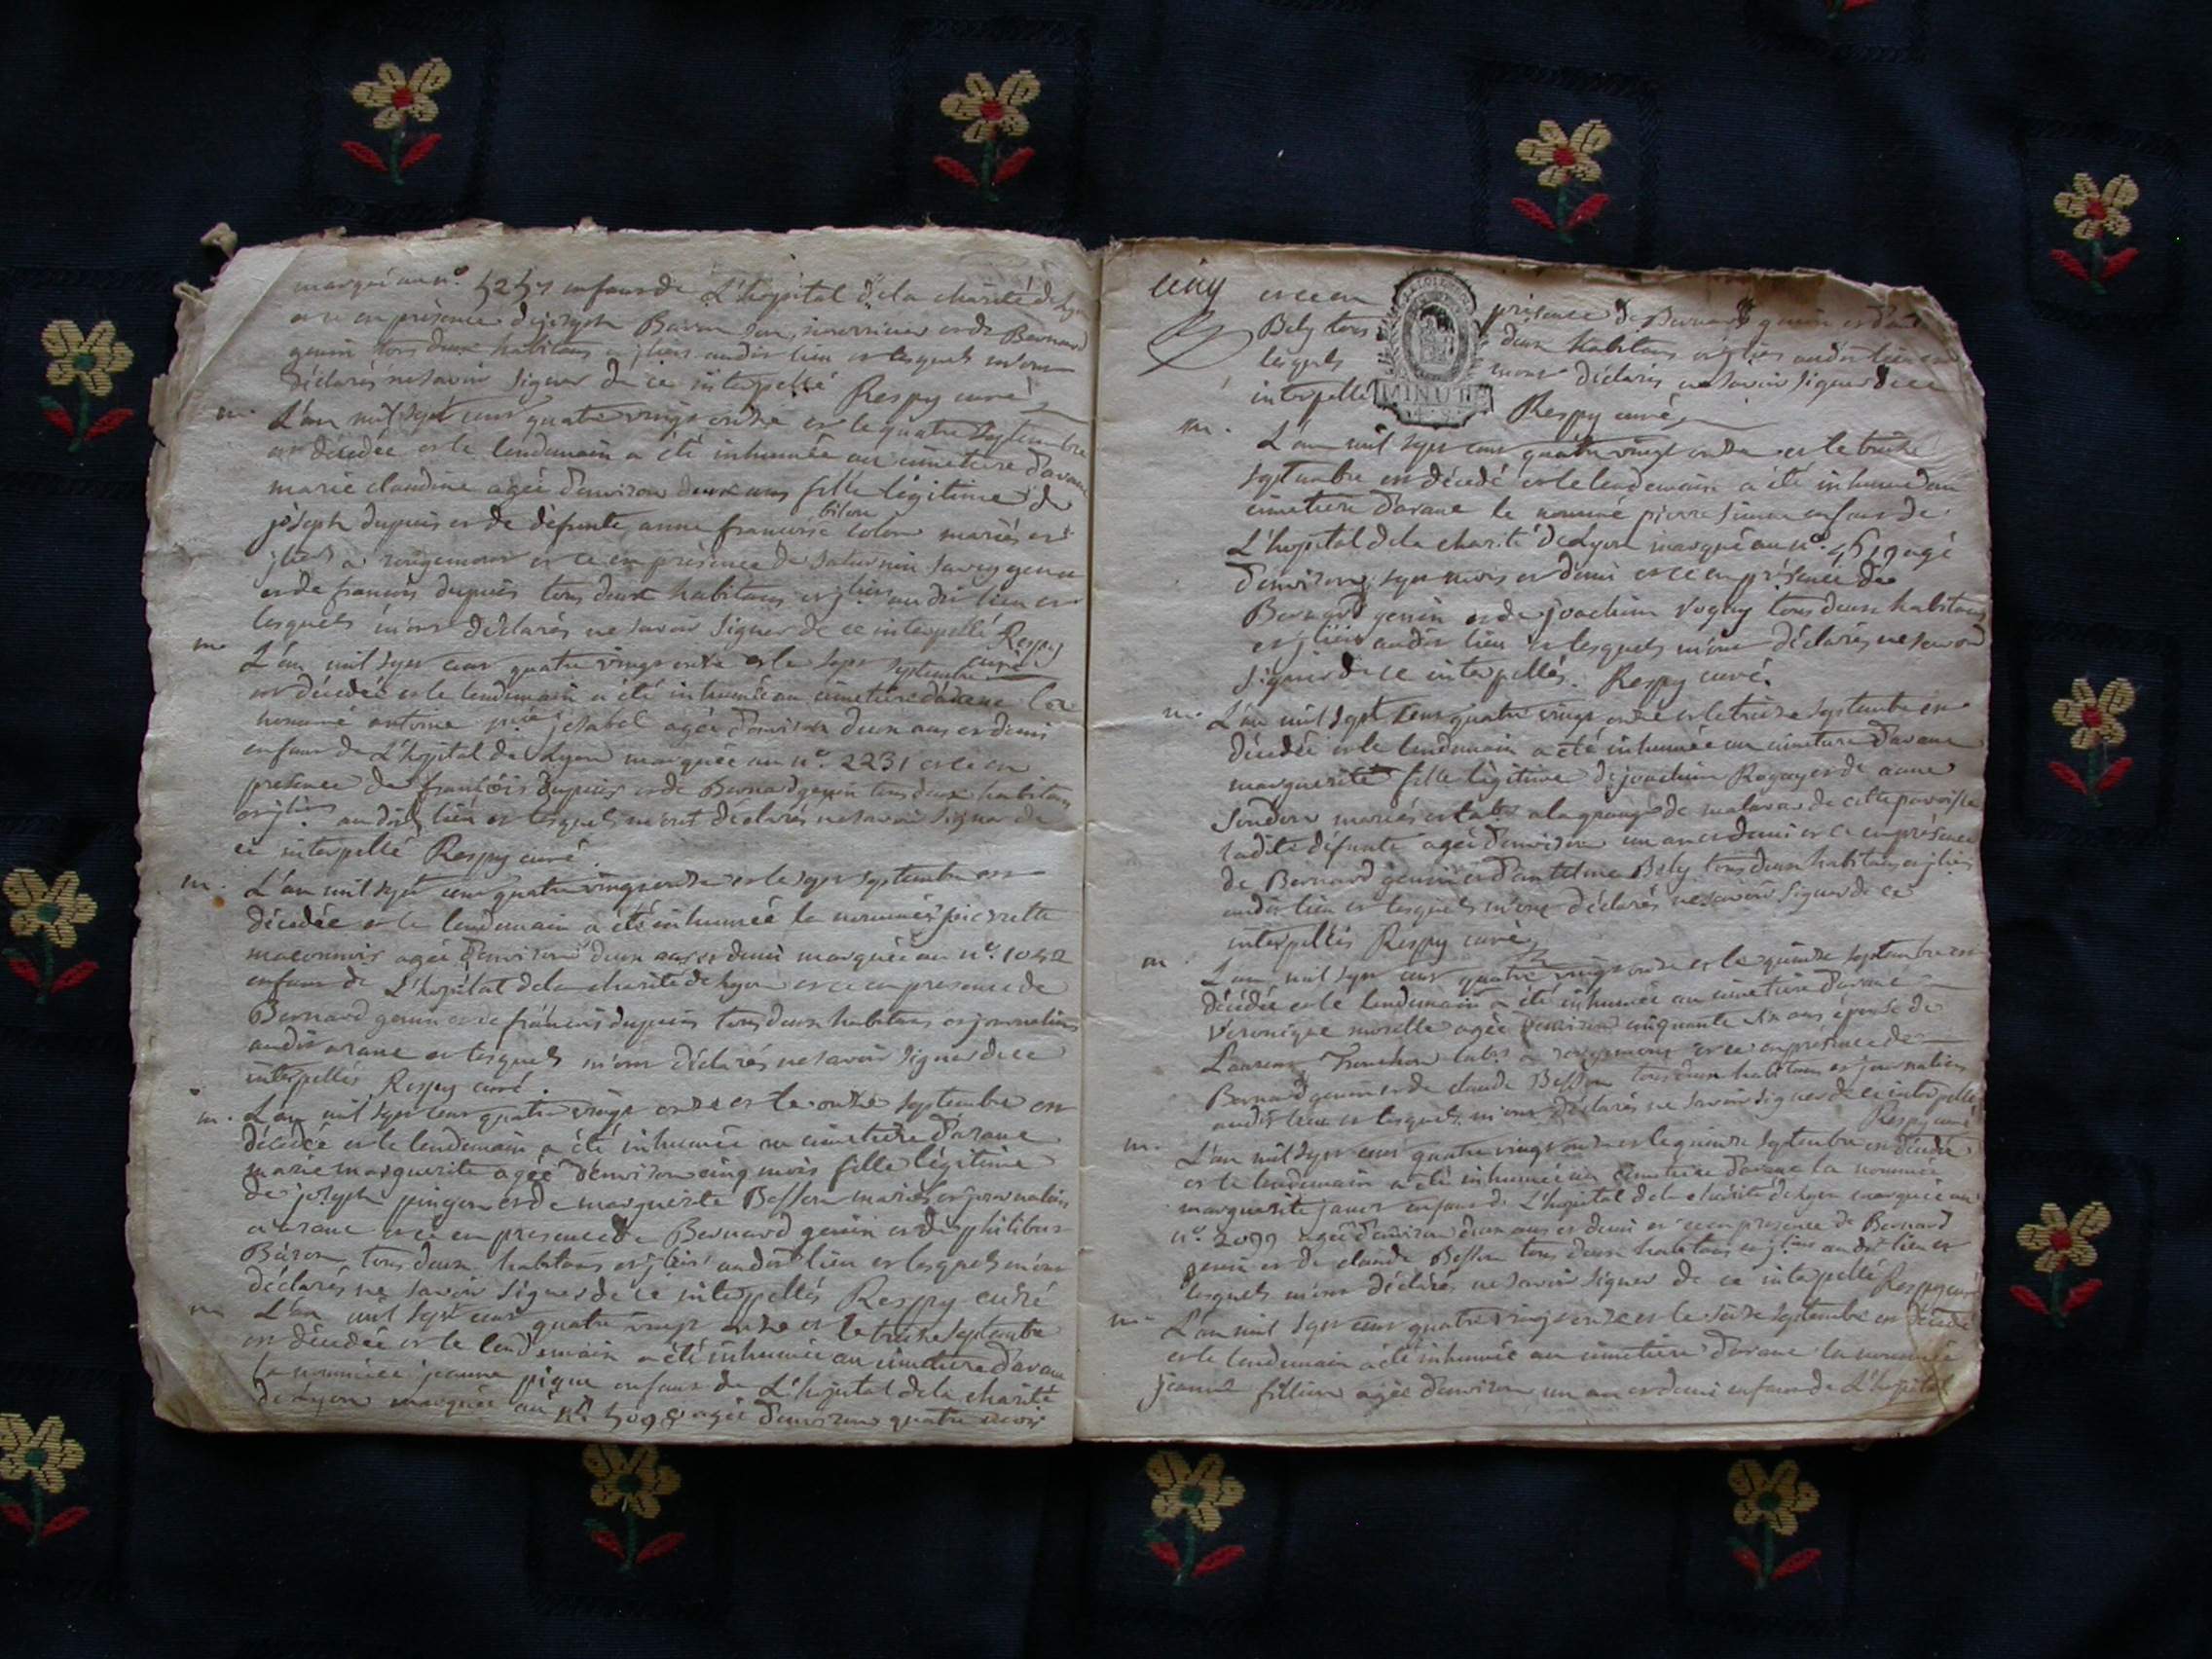 marqué au n°. 5257 enfans de L'hopital de la charité de Lyon
et ce en présence de joseph Baron son nourricier et de Bernard
genin tous deux habitans audit lieu et lesquels m'ont
déclarés ne savoir signer de ce interpellé Respy curé
m. L'an mil sept cent quatre vingt onze et le quatre septembre
est décédée et le lendemain a été inhumée au cimetiere d'arane
marie claudine agée d'environ deux ans fille légitime de
joseph dupuis et de défunte anne francoise colon mariés et
a rougemont et ce en présence de
et de francois dupuis tous deux habitans et audit lieu et
lesquels m'ont déclarés ne savoir signer de ce interpellé Respy
curé
m. L'an mil sept cent quatre vingt onze et le sept septembre
est décédée et le lendemain a été inhumée au cimetiere d'arane
nommé antoine agée d'environ deux ans et demi
enfant de L'hopital de Lyon marquée au n°. 2231 et ce en
présence de francois dupuis et de Bernard genin tous deux habitans
audit lieu et lesquels m'ont déclarés ne savoir signer de
ce interpellé Respy curé.
m. L'an mil sept cent quatre vingt onze et le sept septembre est
décédée et le lendemain a été inhumée la nommée pierrette
agée d'environ deux ans et demi marquée au n°. 1042
enfant de L'hopital de la charité de Lyon et ce en presence de
Bernard genin et de francois dupuis tous deux habitans et journaliers
audit arane et lesquels m'ont déclarés ne savoir signer de ce
interpellés Respy curé.
m. L'an mil sept cent quatre vingt onze et le onze septembre est
décédée et le lendemain a été inhumée au cimetiere d'arane
marie marguerite agée d'environ cinq mois fille légitime
de joseph pingon et de marguerite Besson mariés et journaliers
a arane et ce en presence de Bernard genin et de philibert
Baron tous deux habitans audit lieu et lesquels m'ont
déclarés ne savoir signer de ce interpellés Respy curé
m L'an mil sept cent quatre vingt onze et le treize septembre
est décédée et le lendemain a été inhumée au cimetiere d'arane
la nommée jeanne pique enfant de L'hopital de la charité
de Lyon marquée au n°. 5098 agée d'environ quatre mois
cinq et ce en présence de Bernard genin et d'ant
Bely tous deux habitans audit lieu et
lesquels m'ont déclarés ne savoir signer de ce
interpellé MINUTE Respy curé
m. L'an mil sept cent quatre vingt onze et le treize
septembre est décédé et le lendemain a été inhumé au
cimetiere d'arane le nommé pierre simon enfant de
L'hopital de la charité de Lyon marqué au n°. agé
d'environ sept mois et demi et ce en présence de
Bernard genin et de joachim tous deux habitans
audit lieu et lesquels m'ont déclarés ne savoir
signer de ce interpellés. Respy curé.
m. L'an mil sept cent quatre vingt onze et le treize septembre est
décédée et le lendemain a été inhumée au cimetiere d'arane
marguerite fille légitime de joachim et de anne
mariés et a la grange de malaval de cette paroisse
ladite défunte agée d'environ un an et demi et ce en présence
de Bernard genin et d'antelme Bely tous deux habitans
audit lieu et lesquels m'ont déclarés ne savoir signer de ce
interpellés Respy curé
m. L'an mil sept cent quatre vingt onze et le quinze septembre est
décédée et le lendemain a été inhumée au cimetiere d'arane
veronique morelle agée d'environ cinquante six ans épouse de
Laurent a rougemont et ce en présence de
Bernard genin et de claude Besson tous deux habitans et journaliers
audit lieu et lesquels m'ont déclarés ne savoir signer de ce interpellé
Respy curé
m. L'an mil sept cent quatre vingt onze et le quinze septembre est décédée
et le lendemain a été inhumée au cimetiere d'arane la nommée
marguerite enfant de L'hopital de la charité de Lyon marquée au
n°. 2099 agée d'environ deux ans et demi et ce en presence de Bernard
genin et de claude Besson tous deux habitans audit lieu et
lesquels m'ont déclarés ne savoir signer de ce interpellé Respy curé
m. L'an mil sept cent quatre vingt onze et le seize septembre est décédée
et le lendemain a été inhumée au cimetiere d'arane la nommée
jeanne agée d'environ un an et demi enfant de L'hopital